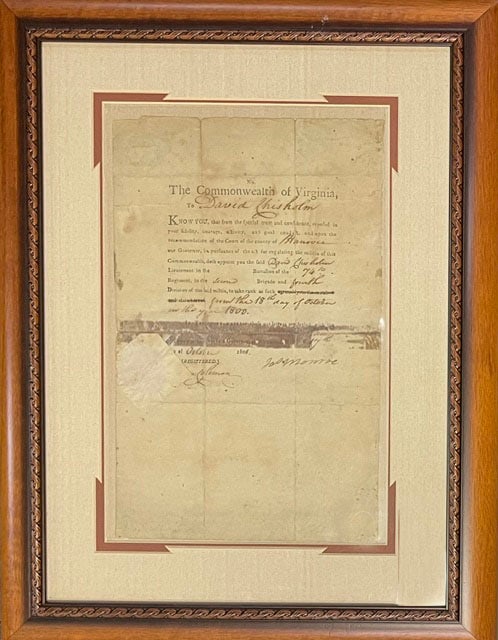 The Commonwealth of Virginia,
To David Chisholm
KNOW YOU, that from the special trust and confidence, reposed in
your fidelity, courage, activity, and good conduct, and upon the
recommendation of the Court of the county of Hanover
our Governor, in pursuance of the act for regulating the militia of this
Commonwealth, doth appoint you the said David Chisholm
Lieutenant in the Battalion of the 74th
Regiment, in the Second Brigade and fourth
Division of the said militia, to take rank as such
from the 18th day of October
in this year 1800.
of October 1800.
(REGISTERED.) Jas Monroe
Coleman